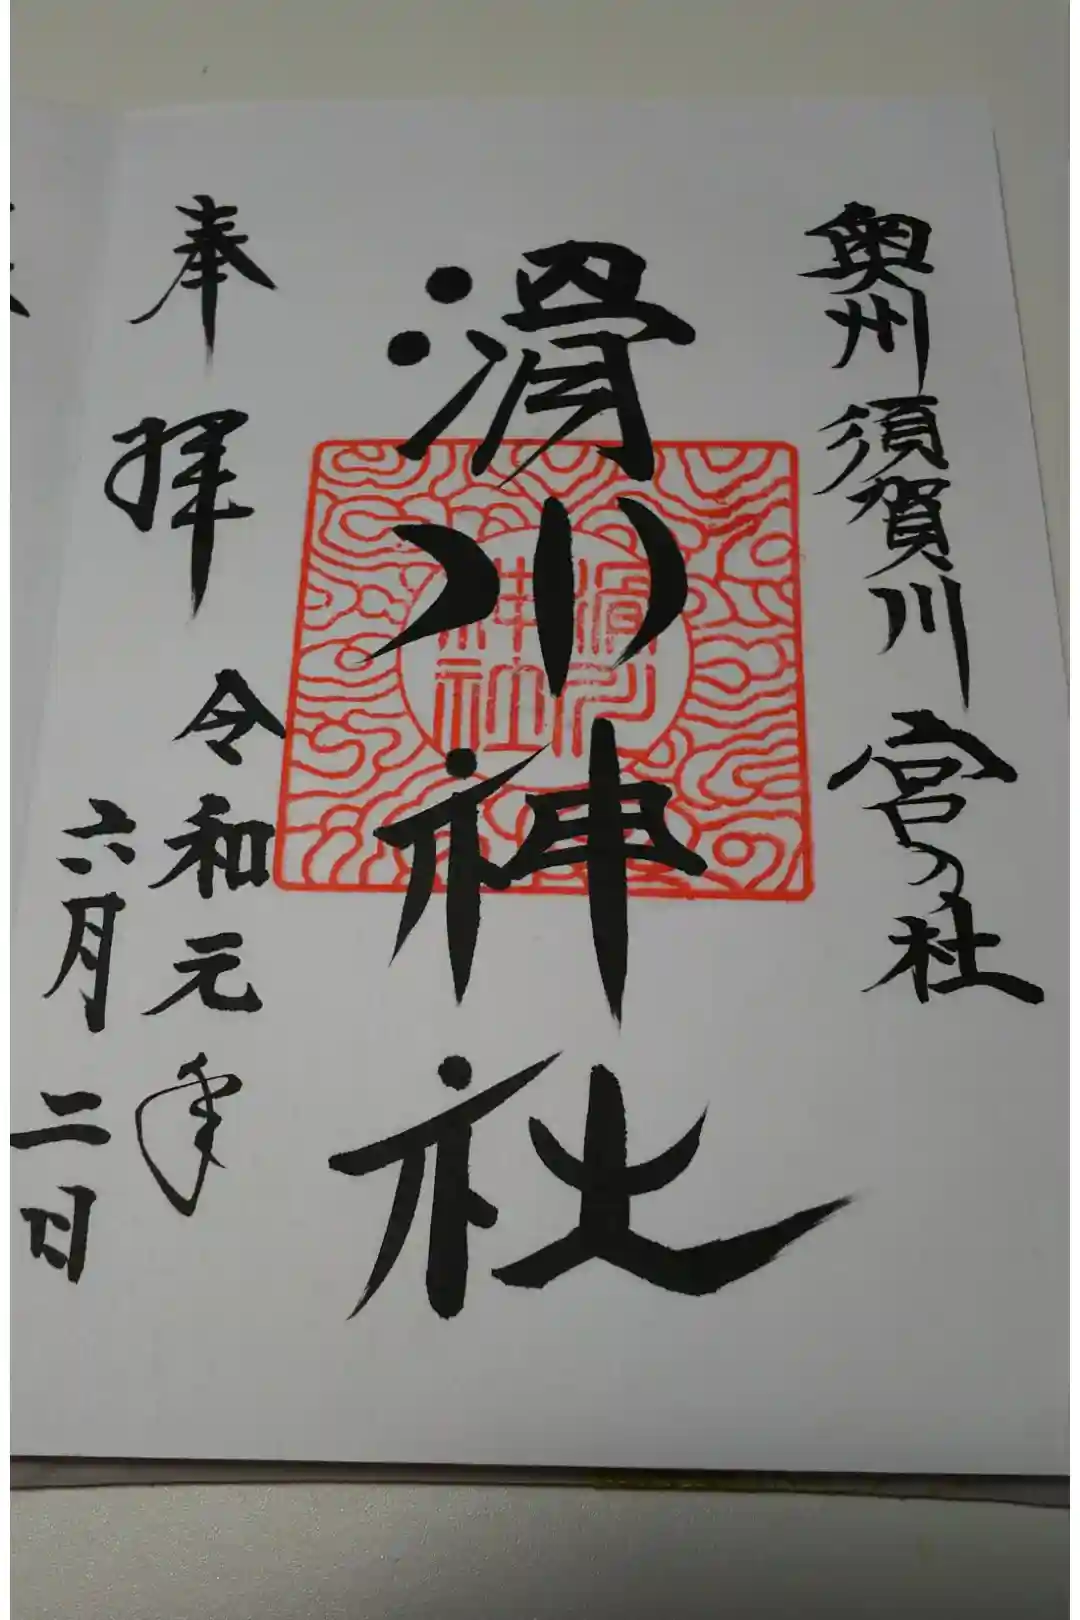 奥州須賀川宮の杜
滑川神社
滑川
神社
奉拝
令和元年
六月二日